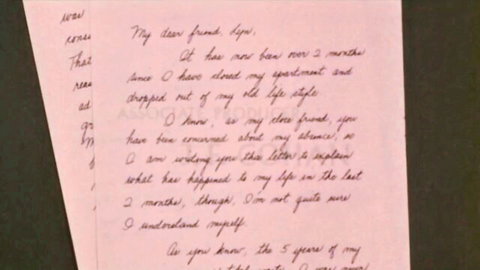 was
That
My dear friend, Lyn,
It has now been over 2 months
since I have closed my apartment and
dropped out of my old life style.
I know, as my close friend, you
have been concerned about my absence, so
I am writing you this letter to explain
what has happened to my life in the last
2 months, though, I'm not quite sure
I understand myself.
As you know, the 5 years of my